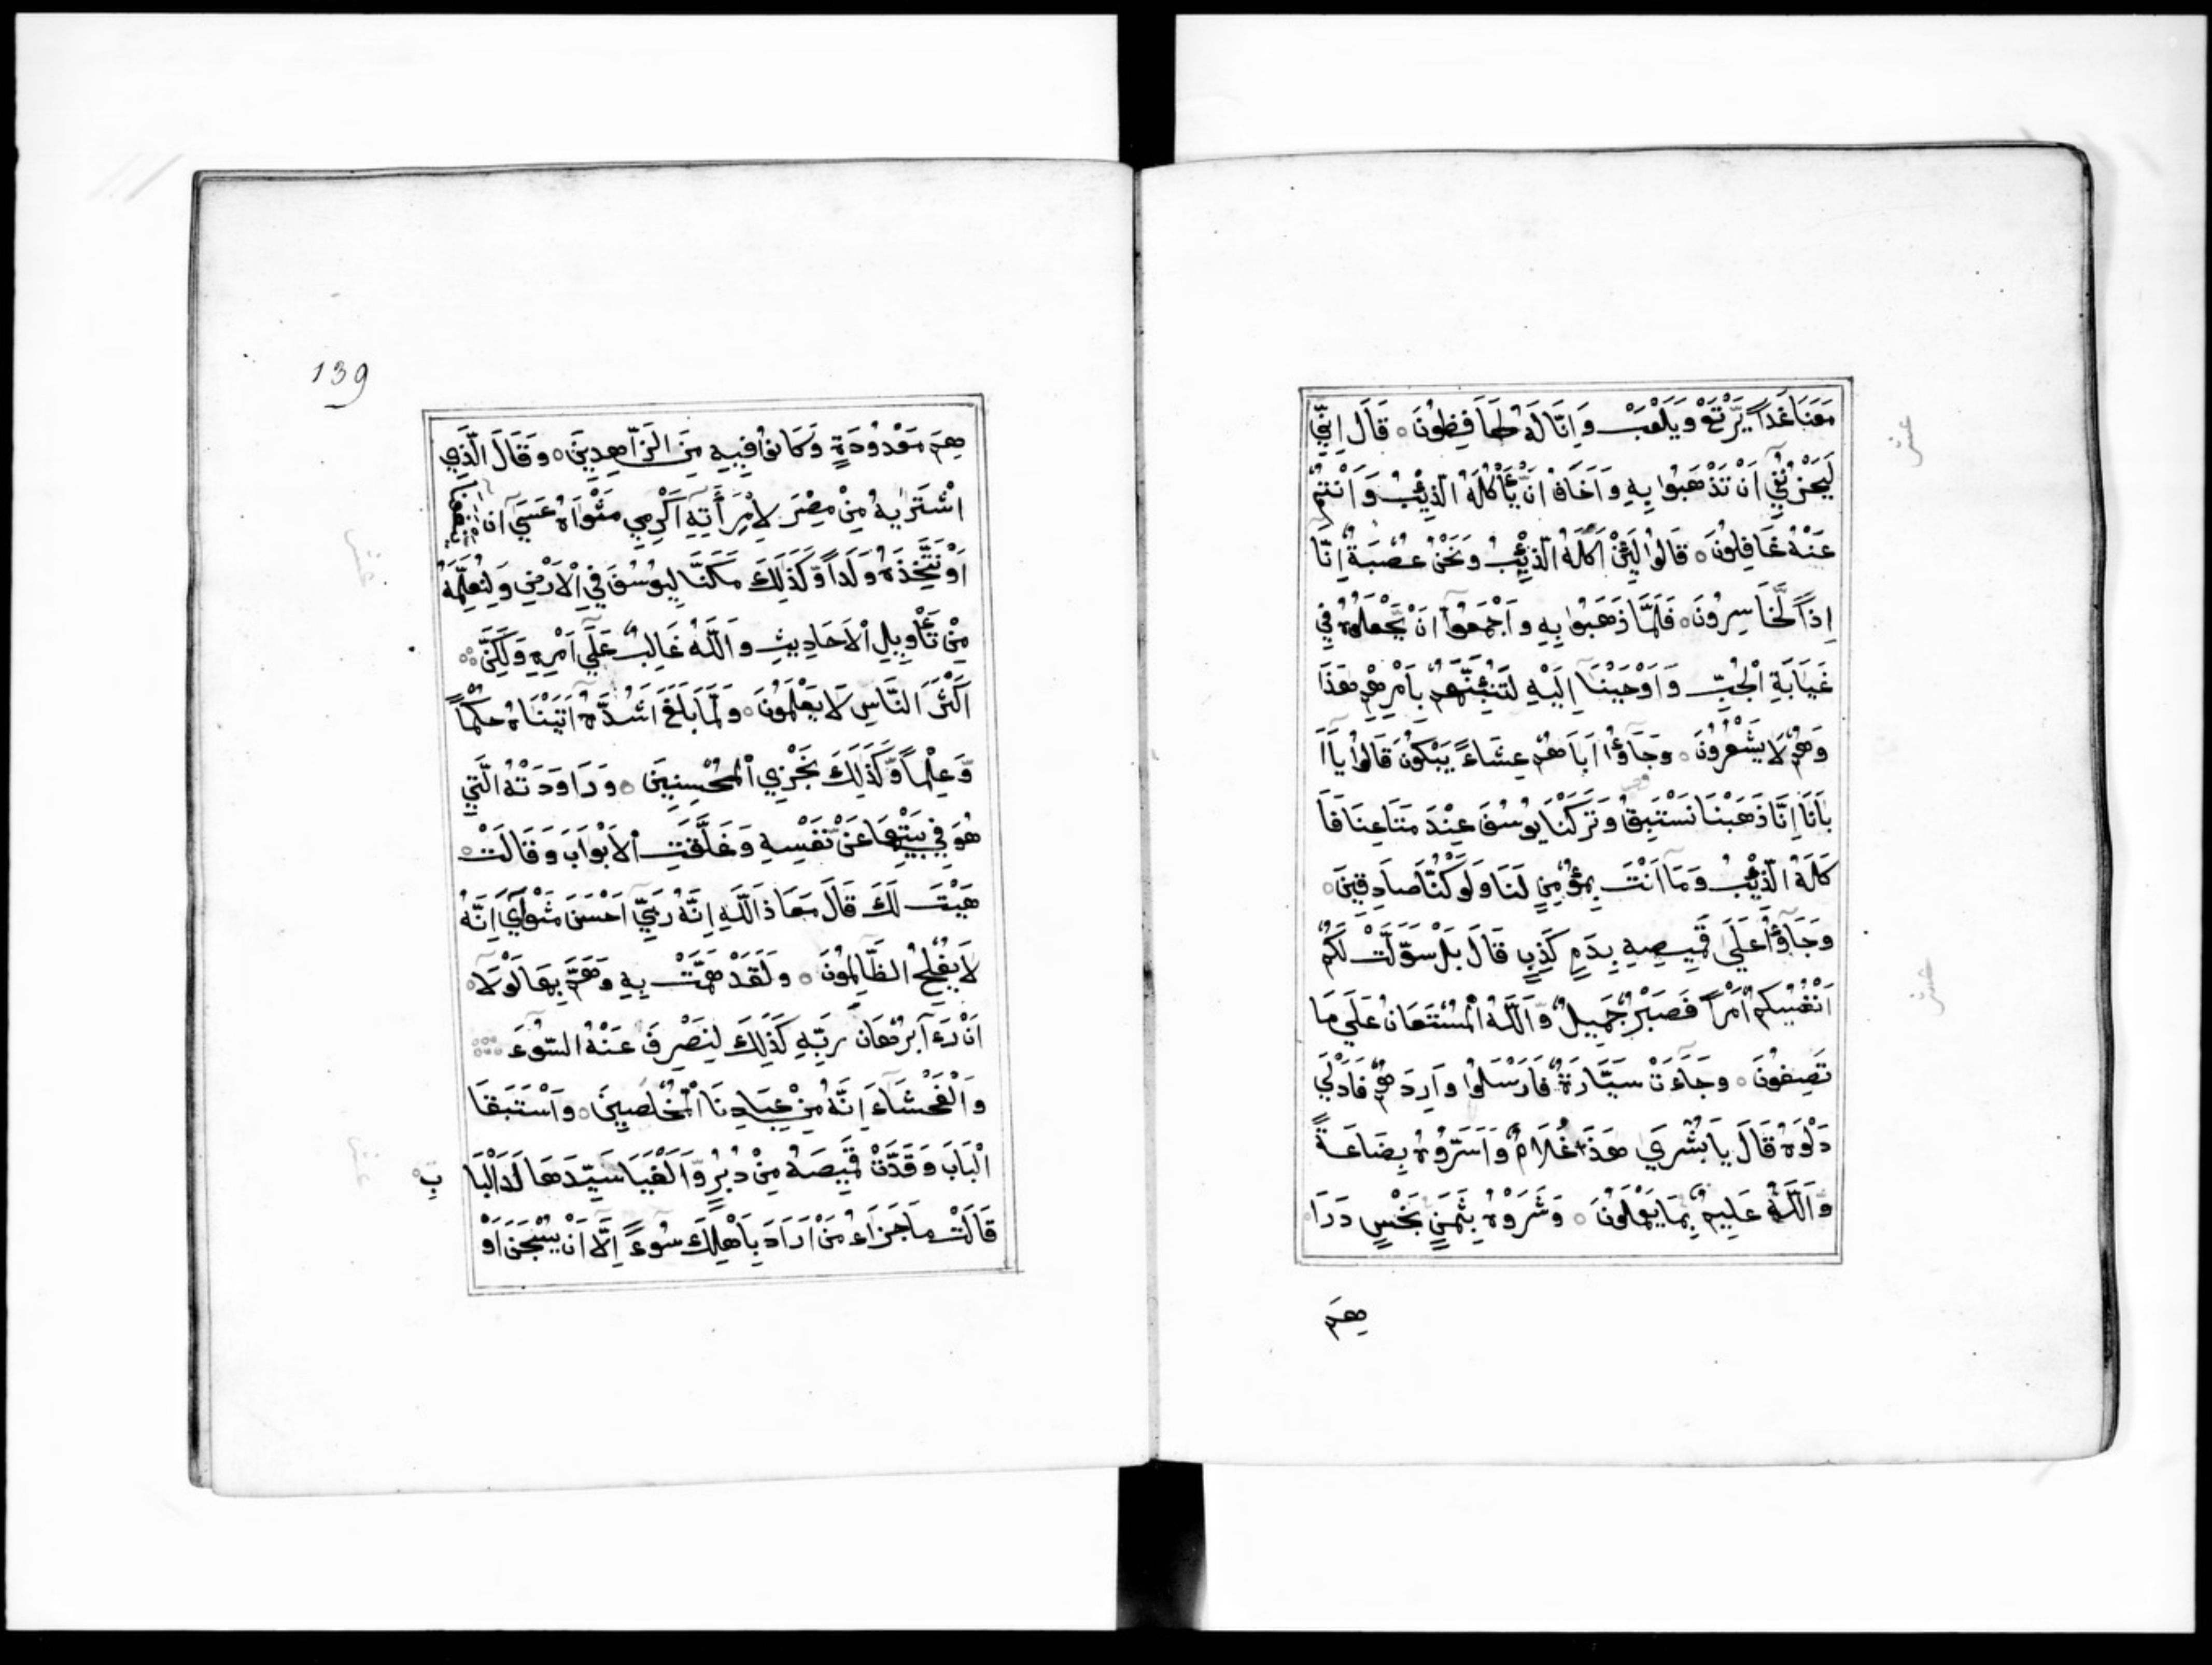 مَعَنَا غَداً يَّرْتَعْ وَيَلْعَبْ وَاِنَّا لَهُ لَحَافِظُونَ ۝ قَالَ اِنِّي
لَيَحْزُنُنِي اَنْ تَذْهَبُوا بِهِ وَاَخَافُ اَنْ يَّأْكُلَهُ الذِّئْبُ وَاَنْتُمْ
عَنْهُ غَافِلُونَ ۝ قَالُوا لَئِنْ اَكَلَهُ الذِّئْبُ وَنَحْنُ عُصْبَةٌ اِنَّا
اِذاً لَّخَاسِرُونَ ۝ فَلَمَّا ذَهَبُوا بِهِ وَاَجْمَعُوٓا اَنْ يَّجْعَلُوهُ فِي
غَيَابَةِ الْجُبِّ وَاَوْحَيْنَآ اِلَيْهِ لَتُنَبِّئَنَّهُمْ بِاَمْرِهِمْ هَذَا
وَهُمْ لَا يَشْعُرُونَ ۝ وَجَآؤُا اَبَاهُمْ عِشَاءً يَبْكُونَ قَالُوا يَآاَ
بَانَآ اِنَّا ذَهَبْنَا نَسْتَبِقُ وَتَرَكْنَا يُوسُفَ عِنْدَ مَتَاعِنَا فَاَ
كَلَهُ الذِّئْبُ وَمَآ اَنْتَ بِمُؤْمِنٍ لَنَا وَلَوْ كُنَّا صَادِقِينَ ۝
وَجَآؤُا عَلَى قَمِيصِهِ بِدَمٍ كَذِبٍ قَالَ بَلْ سَوَّلَتْ لَكُمْ
اَنْفُسُكُمْ اَمْراً فَصَبْرٌ جَمِيلٌ وَّاللَّهُ الْمُسْتَعَانُ عَلَى مَا
تَصِفُونَ ۝ وَجَآءَتْ سَيَّارَةٌ فَاَرْسَلُوا وَارِدَهُمْ فَاَدْلَى
دَلْوَهُ قَالَ يَا بُشْرَى هَذَا غُلَامٌ وَاَسَرُّوهُ بِضَاعَةً
وَّاللَّهُ عَلِيمٌ بِمَا يَعْمَلُونَ ۝ وَشَرَوْهُ بِثَمَنٍ بَخْسٍ دَرَا
هِمَ
عشر
عشر
139
هِمَ مَعْدُودَةٍ وَكَانُوا فِيهِ مِنَ الزَّاهِدِينَ ۝ وَقَالَ الَّذِي
اشْتَرٰيهُ مِنْ مِصْرَ لِامْرَأَتِهِ اَكْرِمِي مَثْوَاهُ عَسَى اَنْ يَنْفَعَنَا
اَوْ نَتَّخِذَهُ وَلَداً وَّكَذَلِكَ مَكَّنَّا لِيُوسُفَ فِي الْاَرْضِ وَلِنُعَلِّمَهُ
مِنْ تَأْوِيلِ الْاَحَادِيثِ وَاللَّهُ غَالِبٌ عَلَى اَمْرِهِ وَلَكِنَّ
اَكْثَرَ النَّاسِ لَا يَعْلَمُونَ ۝ وَلَمَّا بَلَغَ اَشُدَّهُ اَتَيْنَاهُ حُكْماً
وَّعِلْماً وَّكَذَلِكَ نَجْزِي الْمُحْسِنِينَ ۝ وَرَاوَدَتْهُ الَّتِي
هُوَ فِي بَيْتِهَا عَنْ نَفْسِهِ وَغَلَّقَتِ الْاَبْوَابَ وَقَالَتْ
هَيْتَ لَكَ قَالَ مَعَاذَ اللَّهِ اِنَّهُ رَبِّي اَحْسَنَ مَثْوَايَ اِنَّهُ
لَا يُفْلِحُ الظَّالِمُونَ ۝ وَلَقَدْ هَمَّتْ بِهِ وَهَمَّ بِهَا لَوْلَا
اَنْ رَءَا بُرْهَانَ رَبِّهِ كَذَلِكَ لِنَصْرِفَ عَنْهُ السُّوٓءَ
وَالْفَحْشَآءَ اِنَّهُ مِنْ عِبَادِنَا الْمُخْلَصِينَ ۝ وَاسْتَبَقَا
الْبَابَ وَقَدَّتْ قَمِيصَهُ مِنْ دُبُرٍ وَّاَلْفَيَا سَيِّدَهَا لَدَا الْبَا بِ
قَالَتْ مَا جَزَآءُ مَنْ اَرَادَ بِاَهْلِكَ سُوءً اِلَّآ اَنْ يُسْجَنَ اَوْ